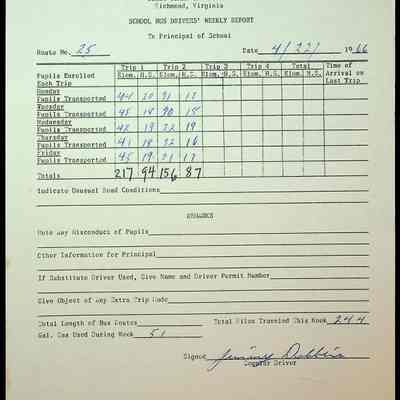 Richmond, Virginia
SCHOOL BUS DRIVERS' WEEKLY REPORT
To Principal of School
Route No. 25 Date 4/22/ 1966
Trip 1 Trip 2 Trip 3 Trip 4 Total Time of
Pupils Enrolled Elem. H.S. Elem. H.S. Elem. H.S. Elem. H.S. Elem. H.S. Arrival on
Each Trip Last Trip
Monday
Pupils Transported 44 20 31 17
Tuesday
Pupils Transported 45 18 30 15
Wednesday
Pupils Transported 42 19 32 19
Thursday
Pupils Transported 41 18 32 16
Friday
Pupils Transported 45 19 31 17
Totals 217 94 156 87
Indicate Unusual Road Conditions
REMARKS
Note Any Misconduct of Pupils
Other Information for Principal
If Substitute Driver Used, Give Name and Driver Permit Number
Give Object of Any Extra Trip Made
Total Length of Bus Routes Total Miles Traveled This Week 244
Gal. Gas Used During Week 51
Signed Jimmy Dobbins
Regular Driver